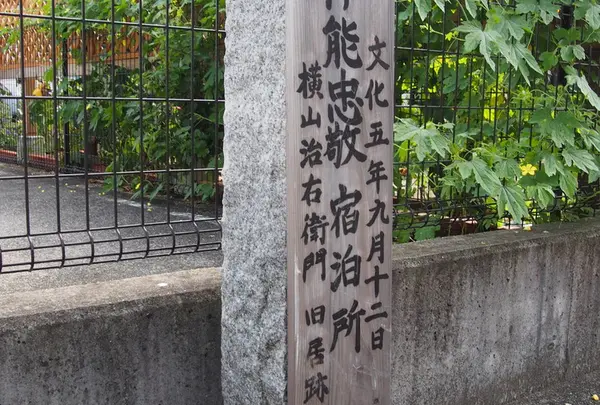 文化五年九月十二日
伊能忠敬 宿泊所
横山治右衛門 旧居跡